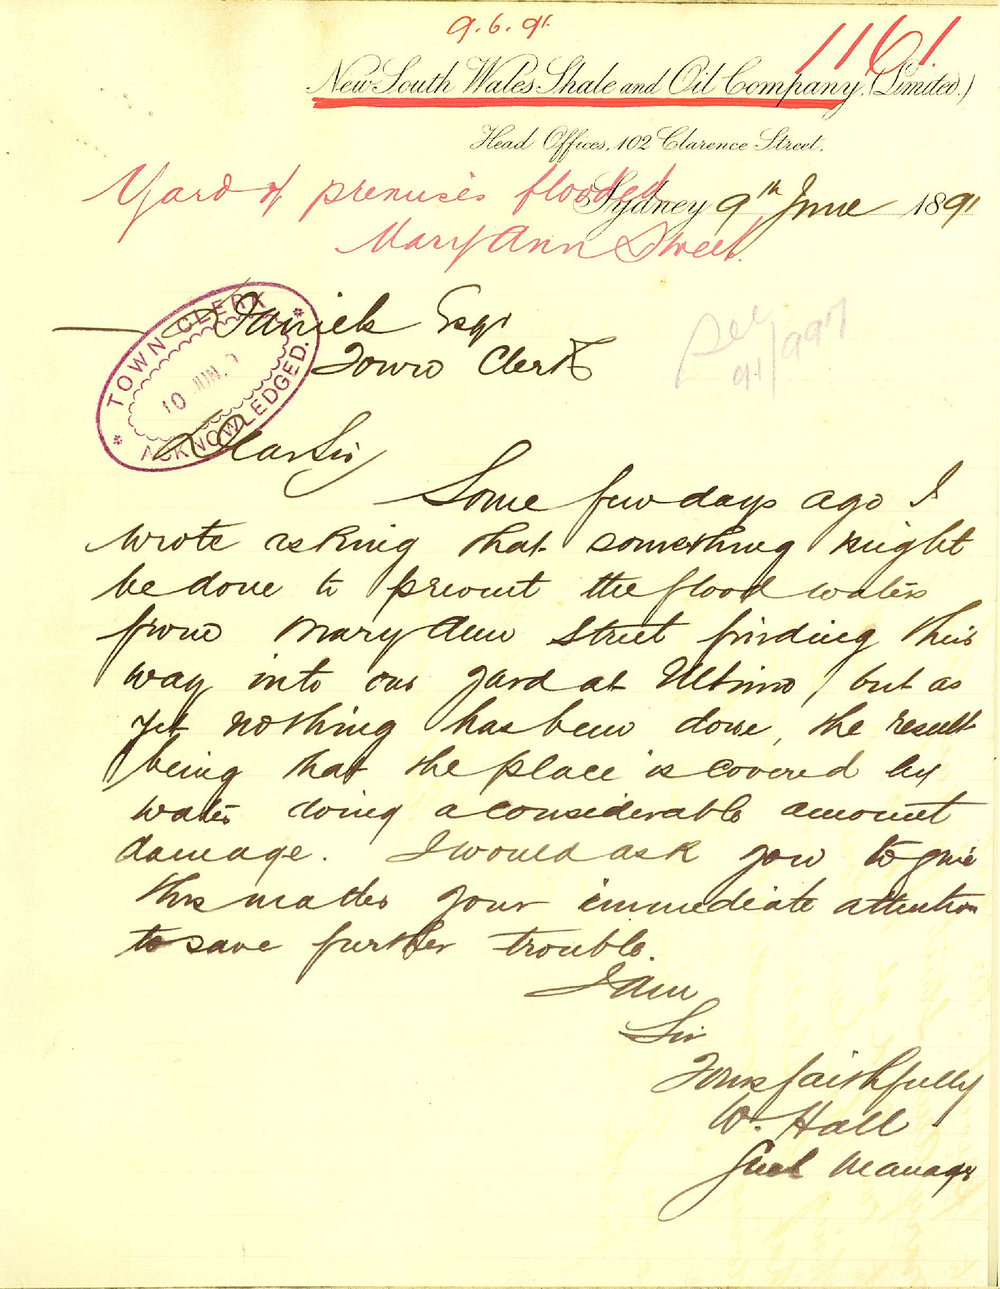 9.6.91.
1161.
New South Wales Shale and Oil Company, (Limited.)
Head Offices, 102 Clarence Street,
Yard of premises flooded
Sydney 9th June 1891
Mary Ann Street.
Daniels Esqr
Town Clerk
TOWN CLERK
10 JUN. 9
ACKNOWLEDGED.
See
91/997
Dear Sir
Some few days ago I
wrote asking that something might
be done to prevent the flood waters
from Mary Ann Street finding their
way into our yard at Ultimo, but as
yet nothing has been done, the result
being that the place is covered by
water doing a considerable amount
damage. I would ask you to give
this matter your immediate attention
to save further trouble.
I am
Sir
Yours faithfully
W. Hall
Genl Manager